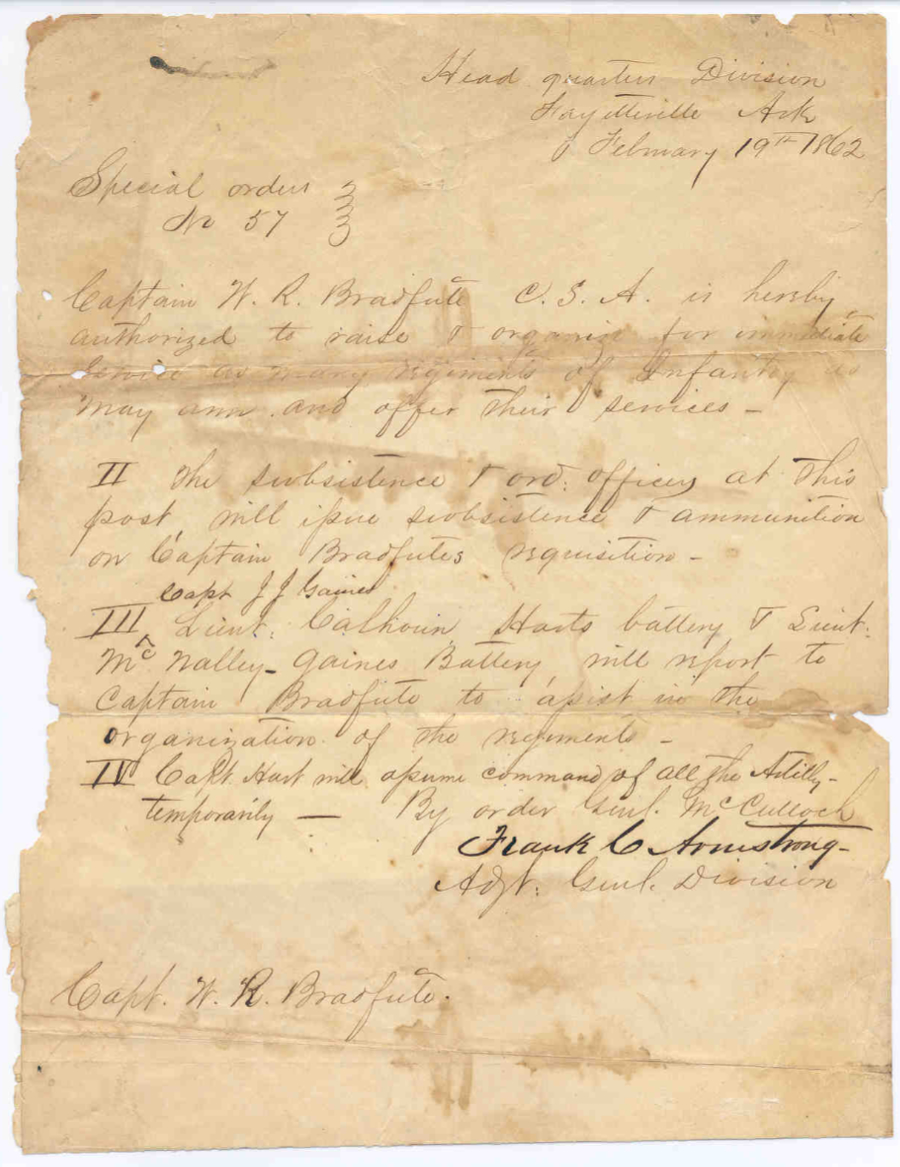 Head quarters Division
Fayetteville Ark
February 19th 1862
Special orders
No 57
Captain W. R. Bradfute C. S. A. is hereby
authorized to raise & organize for immediate
service as many regiments of Infantry as
may arm and offer their services —
II The subsistence & ord. officers at this
post will issue subsistence & ammunition
on Captain Bradfutes requisition —
Capt J J Gaines
III Lieut. Calhoun Harts battery & Lieut.
McNalley - Gaines Battery will report to
Captain Bradfute to assist in the
organization of the regiments —
IV Capt. Hart will assume command of all the Artilly -
temporarily — By order Genl. McCulloch
Frank C Armstrong -
Adjt. Genl. Division
Capt. W. R. Bradfute.